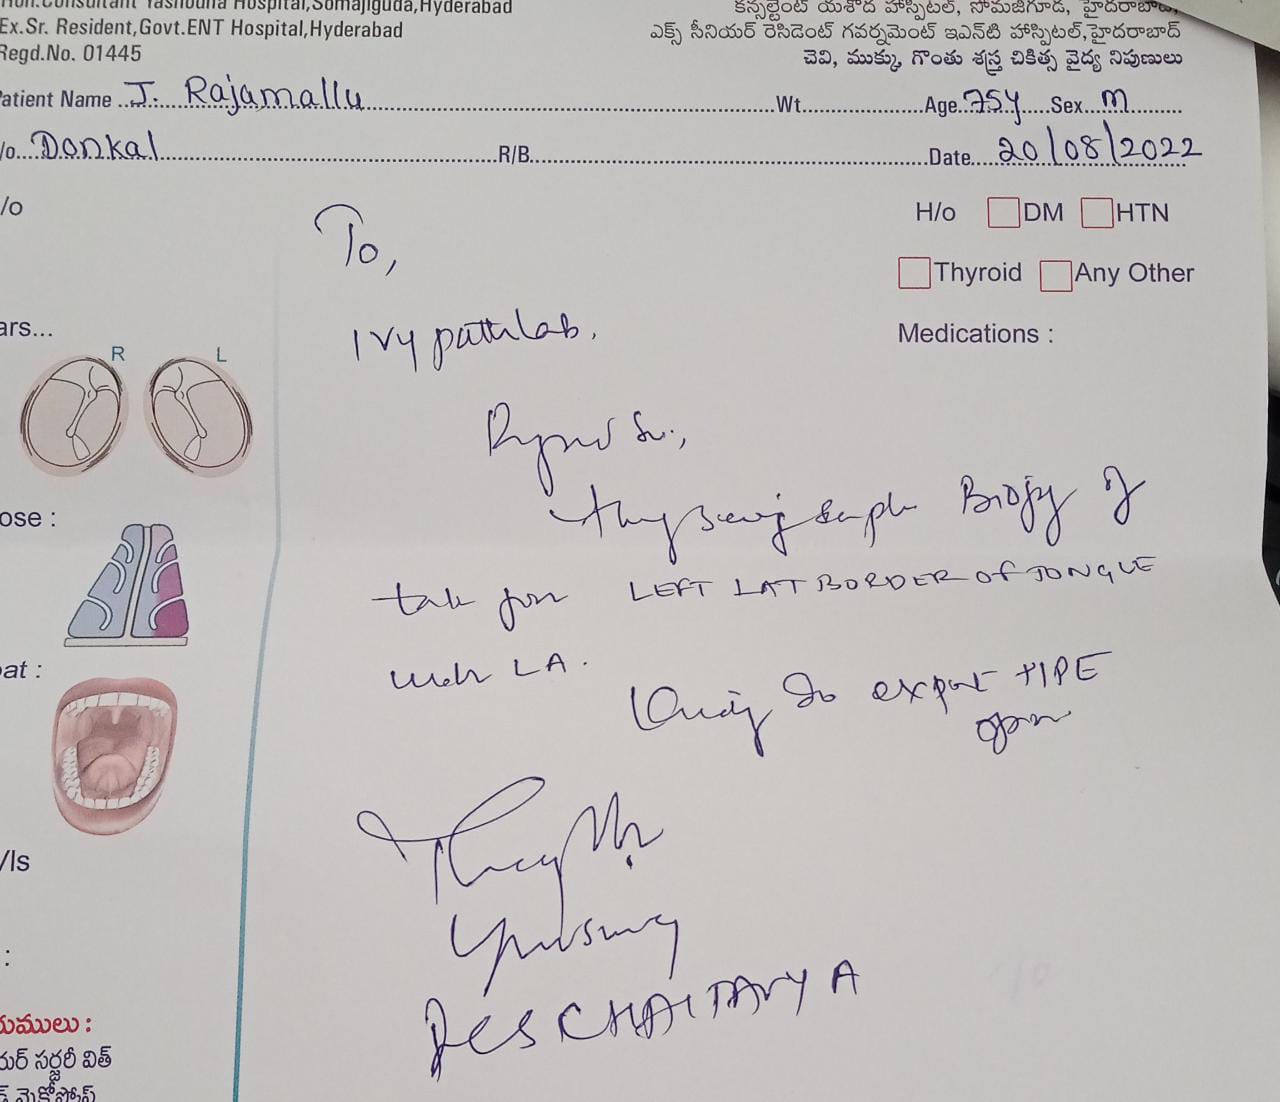 Hon.Consultant Yashodha Hospital,Somajiguda,Hyderabad
Ex.Sr. Resident,Govt.ENT Hospital,Hyderabad
Regd.No. 01445
కన్సల్టెంట్ యశోద హాస్పిటల్, సోమజిగూడ, హైదరాబాద్,
ఎక్స్ సీనియర్ రెసిడెంట్ గవర్నమెంట్ ఇఎన్‌టి హాస్పిటల్,హైదరాబాద్
చెవి, ముక్కు, గొంతు శస్త్ర చికిత్స వైద్య నిపుణులు
Patient Name J. Rajamallu Wt. Age. 75y Sex m
/o. Donkal R/B. Date. 20/08/2022
/o
H/o DM HTN
Thyroid Any Other
Medications :
To,
Ivy path lab.
ars...
R L
Sir,
sample Biopsy of
ose :
taken from LEFT LAT BORDER OF TONGUE
under LA.
oat :
Kindly do expert HPE
Thanking
/ls
yours
:
CHAITANYA
యుములు :
సర్జరీ విత్